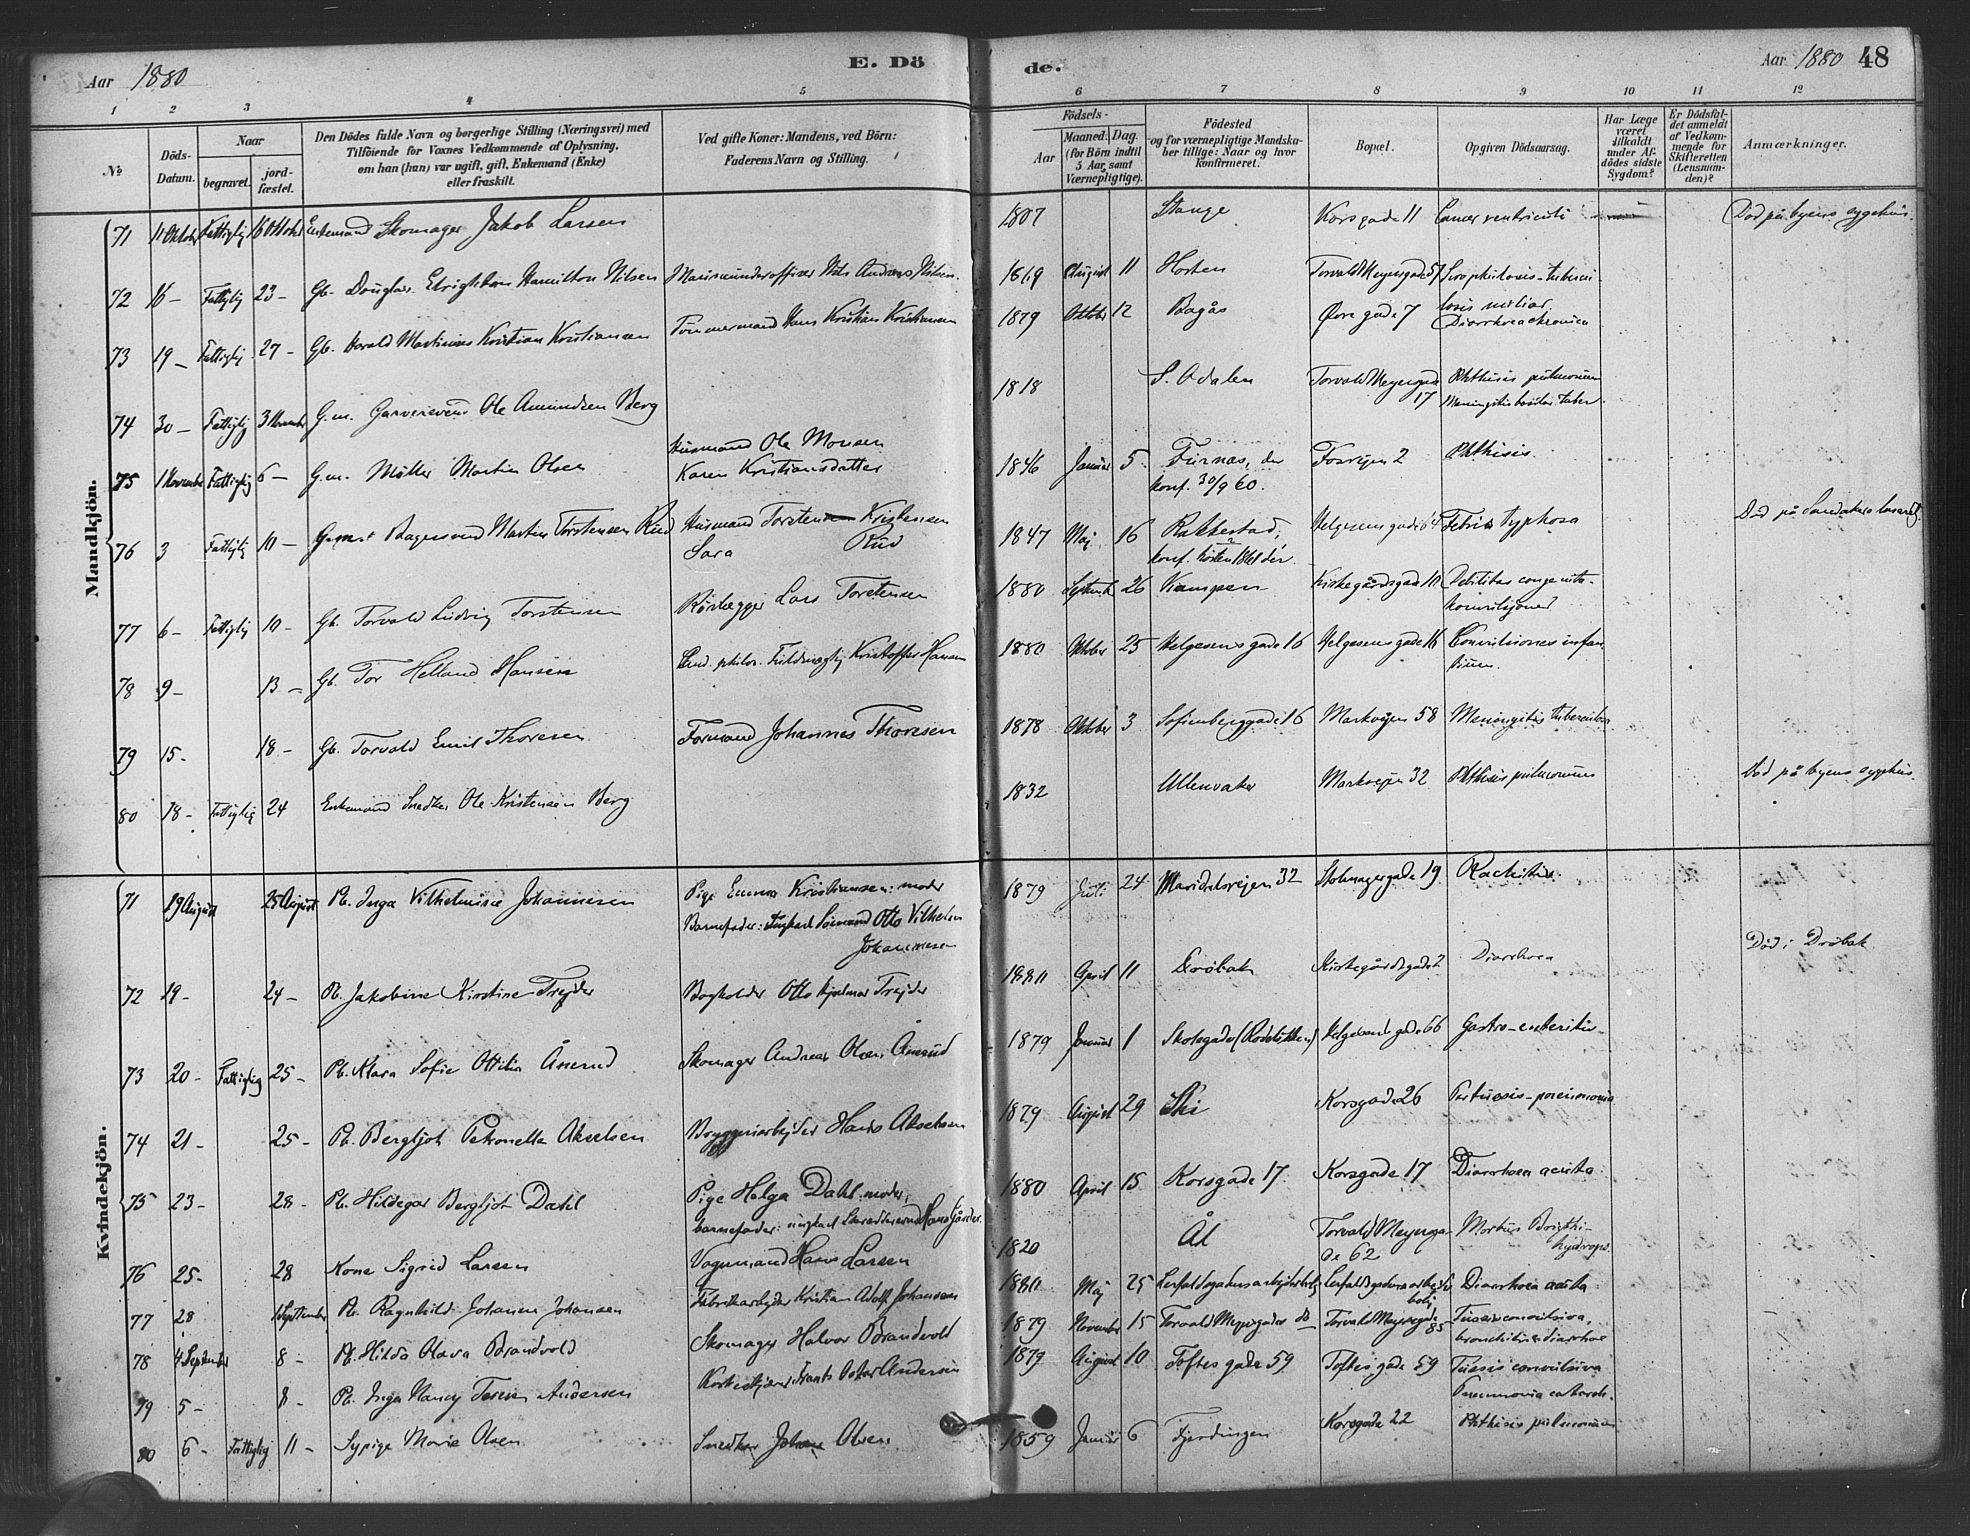 Aar 1880
E. Dö
de.
Aar 1880 48
1 2 3 4 5 6 7 8 9 10 11 12
№
Döds-Datum.
Naar
begravet.
jord-fæstet.
Den Dödes fulde Navn og borgerlige Stilling (Næringsvei) med
Tilföiende for Voxnes Vedkommende af Oplysning,
om han (hun) var ugift, gift, Enkemand (Enke)
eller fraskilt.
Ved gifte Koner: Mandens, ved Börn:
Faderens Navn og Stilling.
Födsels-
Aar
Maaned. Dag.
(for Börn indtil
5 Aar, samt
Værnepligtige).
Födested
og for værnepligtige Mandska-
ber tillige: Naar og hvor
konfirmeret.
Bopæl.
Opgiven Dödsaarsag.
Har Læge
været
tilkaldt
under Af-
dödes sidste
Sygdom?
Er Dödsfal-
det anmeldt
af Vedkom-
mende for
Skifteretten
(Lensman-
den)?
Anmærkninger.
Mandkjön.
71 11 Oktober Fattiglig 16 Oktober Enkemand Skomager Jakob Larsen 1807 Stange Korsgade 11 Cancer ventriculi Död på byens sygehus.
72 16 - Fattiglig 23 - Gb. Douglas Hamilton Nilsen Marineunderofficer Nils Andreas Nilsen. 1869 August 11 Horten Torvald Meyersgade 57 Scrophulosis-tubercu-
losis miliar.
73 19 - Fattiglig 27 - Gb. Harald Martinius Kristian Kristiansen Tömmermand Hans Kristian Kristiansen 1879 Oktober 12 Bagås Övregade 7 Diarrhoea chronica
74 30 - Fattiglig 3 November G.m. Garversvend Ole Amundsen Berg 1818 S. Odalen Torvald Meyersgade 17 Phthisis pulmonum
Meningitis basilar. tuber.
75 1 November Fattiglig 6 - G.m. Möller Martin Olsen Husmand Ole Monsen
Karen Kristiansdatter 1846 Januar 5 Furnæs, der
konf. 30/9 60. Fossvejen 2 Phthisis.
76 3 Fattiglig 10 - Bagersvend Martin Torstensen Rud Husmand Torsten Kristensen
Sara Rud 1847 Maj 16 Rakkestad,
konf. hösten 1861 der. Helgesensgade 64 Febris typhosa Död på Sandakers lasaret.
77 6 - Fattiglig 10 - Gb. Torvald Ludvig Torstensen Rörlægger Lars Torstensen 1880 Septemb. 26 Kampen Kirkegårdsgade 10 Debilitas congenita-
konvulsjoner
78 9 - 13 - Gb. Tor Helland Hansen Stud. philos. Fuldmægtig Kristoffer Hansen 1880 Oktober 25 Helgesens gade 16 Helgesens gade 16 Convulsiones infan-
tium.
79 15 - 18 - Gb. Torvald Emil Thoresen Formand Johannes Thoresen 1878 Oktober 3 Sofienberggade 16 Markvejen 58 Meningitis tuberculosa
80 18 - Fattiglig 24 Enkemand Snedker Ole Kristensen Berg 1832 Ullensaker Markvejen 32 Phthisis pulmonum Död på byens sygehus.
Kvindekjön.
71 19 August 25 August Pb. Inga Vilhelmine Johannesen Pige Emma Kristiansen: moder
Barnefader: Ungkarl Sömand Otto Vilhelm
Johannesen 1879 Juli 24 Maridalsvejen 32 Stolmagergade 19 Rachitis.
72 19 - 24 - Pb. Jakobine Kirstine Trejder Bogholder Otto Hjalmar Trejder 1880 April 11 Dröbak Kirkegårdsgade 2 Diarrhoea Död i Dröbak
73 20 - Fattiglig 25 - Pb. Klara Sofie Ottilia Ånerud Skomager Andreas Olsen Ånerud 1879 Januar 1 Skolegade (Rodelökken) Helgesens gade 66 Gastro-enteritis
74 21 - 25 - Pb. Bergljot Petronella Akselsen Bryggeriarbejder Hans Akselsen 1879 August 29 Ski Korsgade 26 Pertussis-pneumonia
75 23 - 28 - Pb. Hildegar Bergljot Dahl Pige Helga Dahl moder,
barnefader: ungkarl Skræddersvend Hans 1880 April 15 Korsgade 17 Korsgade 17 Diarrhoea acuta
76 25 - 28 Kone Sigrid Larsen Vognmand Hans Larsen 1820 Ål Torvald Meyersga-
de 62 Morbus Brighti-
hydrops.
77 28 1 September Pb. Ragnhild Johanne Johansen Fabrikarbejder Kristian Adolf Johansen 1880 Maj 25 Diarrhoea acuta
78 4 September 8 - Pb. Hilda Olava Brandvold Skomager Halvor Brandvold 1879 November 15 Torvald Meyersgade Torvald Meyersgade 85 Tussis convulsiva,
bronchitis & diarrhoe
79 5 - 8 - Pb. Inga Nancy Andersen Oskar Andersen 1879 August 10 Toftes gade 59 Toftes gade 59 Tussis convulsiva
Pneumonia catarrh.
80 6 - Fattiglig 11 - Sypige Marie Olsen Snedker Johan Olsen 1859 Januar 6 Fjerdingen Korsgade 22 Phthisis pulmonum